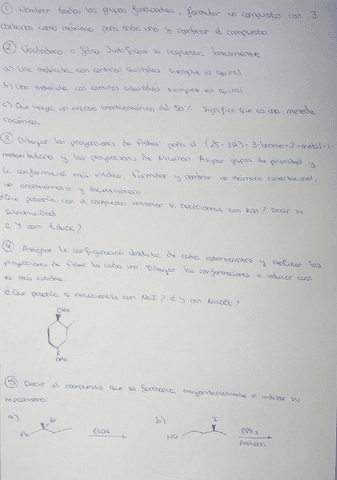 ① Nombrar todos los grupos funcionales, formular un compuesto con 3
carbonos como máximo para cada uno y nombrar el compuesto.
② Verdadero o falso Justifique su respuesta brevemente
a) Una molécula con centros quirales siempre es quiral
b) Una molécula con centros
c) Que haya un exceso enantiomérico del 50% significa que es una mezcla
racémica.
③ Dibujar las proyecciones de Fisher para el (2S-3R)-3-bromo-2-metil-1-
y las proyecciones de Newman. Asignar grupos de prioridad y
la conformación más estable. Formular y nombrar un isómero constitucional,
un enantiómero y diastereómero
¿Qué pasaría con el compuesto anterior si reacciona con KOH? Decir su
selectividad
¿Y con EtOK?
④ Asignar la configuración absoluta de cada estereocentro y realizar las
proyecciones de Fisher de cada uno. Dibujar las conformaciones e indicar cual
es más estable.
¿Qué pasaría si reaccionase con NaI? ¿Y con NaOEt?
⑤ Decir el compuesto que se formaría mayoritariamente e indicar su
mecanismo:
a)
b)
I
HO
PPh3